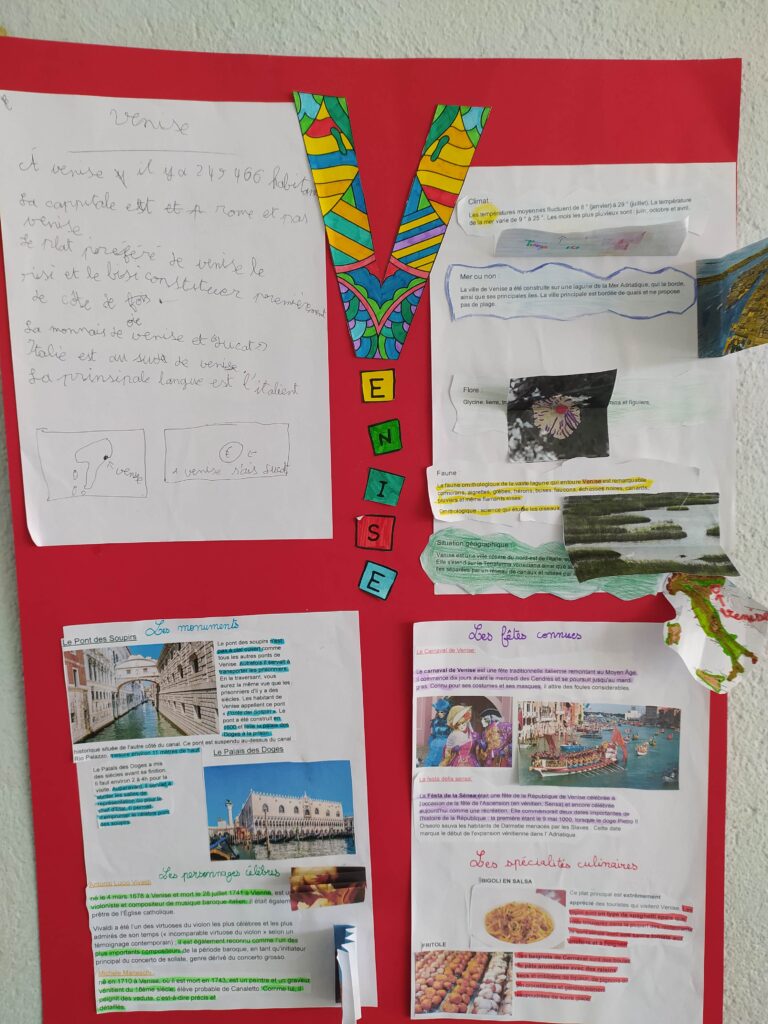 Venise
À venise il y a 249 466 habitan
La cappitale est et Rome et pas
venise
Le plat poreferé de venise le
risi et le bisi constituer
de côte de
La monnais de venise et Ducat
Italie est au sude de venise
La prinsipale langue est l'italient
venise
€
venise s'ais Ducat
V
E
N
I
S
E
Climat :
Les températures moyennes fluctuent de 6 ° (janvier) à 29 ° (juillet). La température
de la mer varie de 9 ° à 25 °. Les mois les plus pluvieux sont : juin, octobre et avril.
Mer ou non :
La ville de Venise a été construite sur une lagune de la Mer Adriatique, qui la borde,
ainsi que ses principales îles. La ville principale est bordée de quais et ne propose
pas de plage.
Flore :
Glycine, lierre, et figuiers,
Faune :
La faune ornithologique de la vaste lagune qui entoure Venise est remarquable :
cormorans, aigrettes, grèbes, hérons, buses, faucons, échasses noires, canards,
pluviers et même flamants roses.
Ornithologique : science qui étudie les oiseaux
Situation géographique :
Venise est une ville côtière du nord-est de l'Italie,
Elle s'étend sur la Terraferma vénitienne ainsi que
îles séparées par un réseau de canaux et reliées par
Les monuments
Le Pont des Soupirs
Le pont des soupirs n'est
pas à ciel ouvert comme
tous les autres ponts de
Venise. Autrefois il servait à
transporter les prisonniers.
En le traversant, vous
aurez la même vue que les
prisonniers d'il y a des
siècles. Les habitant de
Venise appellent ce pont
« Ponte dei Sospiri ». Le
pont a été construit en
1600 et relie le palais des
Doges à la prison
historique située de l'autre côté du canal. Ce pont est suspendu au-dessus du canal
Rio Palazzo, mesure environ 11 mètres de haut
Le Palais des Doges
Le Palais des Doges a mis
des siècles avant sa finition.
Il faut environ 2 à 4h pour le
visite. Auparavant, il servait à
abriter les salles de
représentation ou pour le
chef d'État. Il permet
d'emprunter le célèbre pont
des soupirs
Les personnages célèbres
Antonio Lucio Vivaldi
né le 4 mars 1678 à Venise et mort le 28 juillet 1741 à Vienne, est un
violoniste et compositeur de musique baroque italien. Il était également
prêtre de l'Église catholique.
Vivaldi a été l'un des virtuoses du violon les plus célèbres et les plus
admirés de son temps (« incomparable virtuose du violon » selon un
témoignage contemporain) ; il est également reconnu comme l'un des
plus importants compositeurs de la période baroque, en tant qu'initiateur
principal du concerto de soliste, genre dérivé du concerto grosso
Michele Marieschi,
né en 1710 à Venise, où il est mort en 1743, est un peintre et un graveur
vénitien du 18ème siècle, élève probable de Canaletto. Comme lui, il
peignit des vedute, c'est-à-dire précis et
détaillés.
Les fêtes connues
Le Carnaval de Venise
Le carnaval de Venise est une fête traditionnelle italienne remontant au Moyen Âge.
Il commence dix jours avant le mercredi des Cendres et se poursuit jusqu'au mardi
gras. Connu pour ses costumes et ses masques, il attire des foules considérables.
La festa della sensa.
La Festa de la Sensa était une fête de la République de Venise célébrée à
l'occasion de la fête de l'Ascension (en vénitien, Sensa) et encore célébrée
aujourd'hui comme une récréation. Elle commémorait deux dates importantes de
l'histoire de la République : la première étant le 9 mai 1000, lorsque le doge Pietro II
Orseolo sauva les habitants de Dalmatie menacés par les Slaves . Cette date
marque le début de l'expansion vénitienne dans l' Adriatique.
Les spécialités culinaires
BIGOLI EN SALSA
Ce plat principal est extrêmement
apprécié des touristes qui visitent Venise. Les
bigoli sont un type de spaghetti
FRITOLE
Les beignets de Carnaval sont des boules
de pâte aromatisée avec des raisins